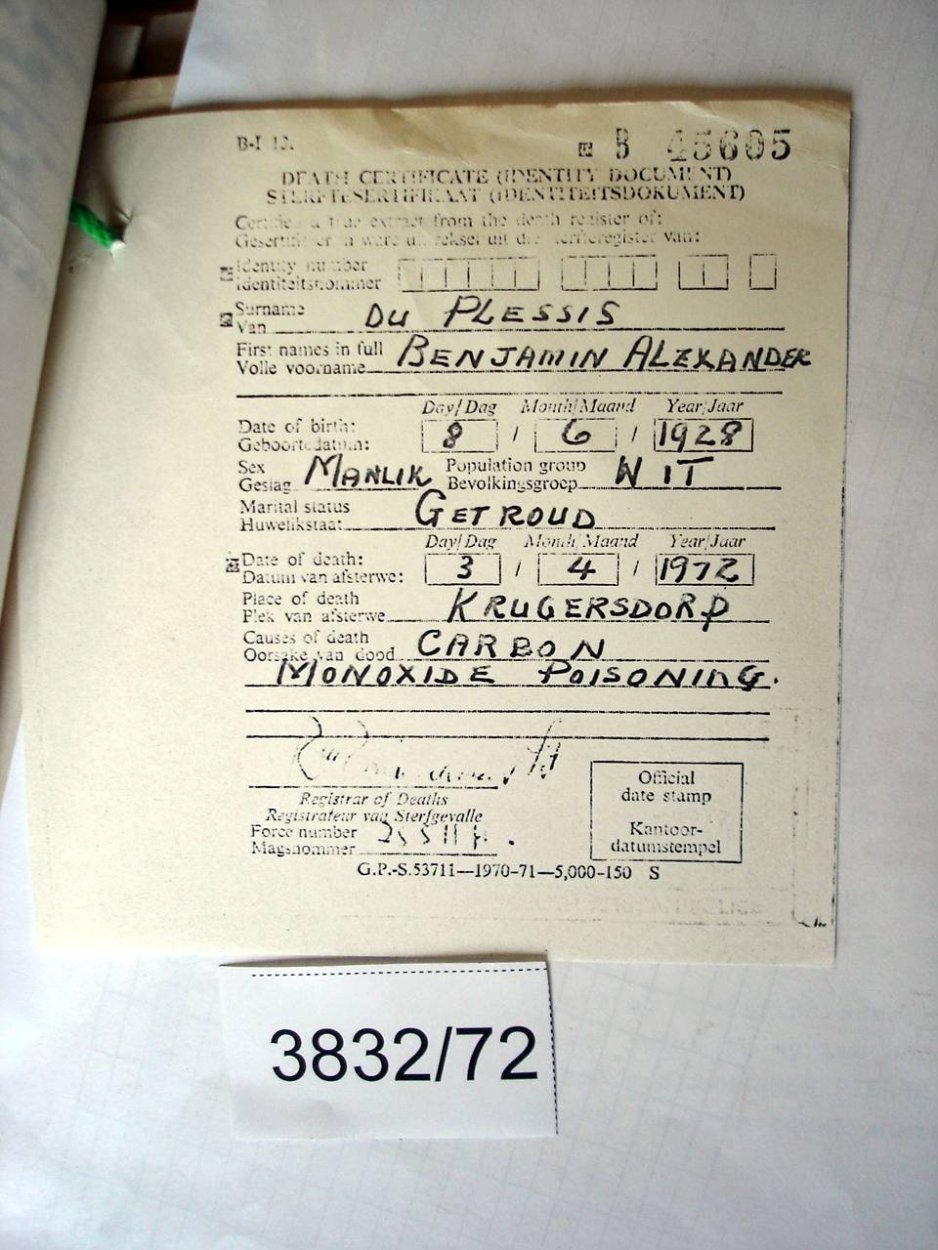 B-I 12.
B 45605
DEATH CERTIFICATE (IDENTITY DOCUMENT)
STERFTESERTIFIKAAT (IDENTITEITSDOKUMENT)
Certified a true extract from the death register of:
Gesertifiseer 'n ware uittreksel uit die sterfteregister van:
Identity number
Identiteitsnommer
Surname
Van DU PLESSIS
First names in full
Volle voorname BENJAMIN ALEXANDER
Day/Dag Month/Maand Year/Jaar
Date of birth:
Geboortedatum: 8 / 6 / 1928
Sex Population group
Geslag MANLIK Bevolkingsgroep WIT
Marital status
Huwelikstaat GETROUD
Day/Dag Month/Maand Year/Jaar
Date of death:
Datum van afsterwe: 3 / 4 / 1972
Place of death
Plek van afsterwe KRUGERSDORP
Causes of death
Oorsake van dood CARBON
MONOXIDE POISONING.
Registrar of Deaths
Registrateur van Sterfgevalle
Force number
Magsnommer
Official
date stamp
Kantoor-
datumstempel
G.P.-S.53711—1970-71—5,000-150 S
3832/72